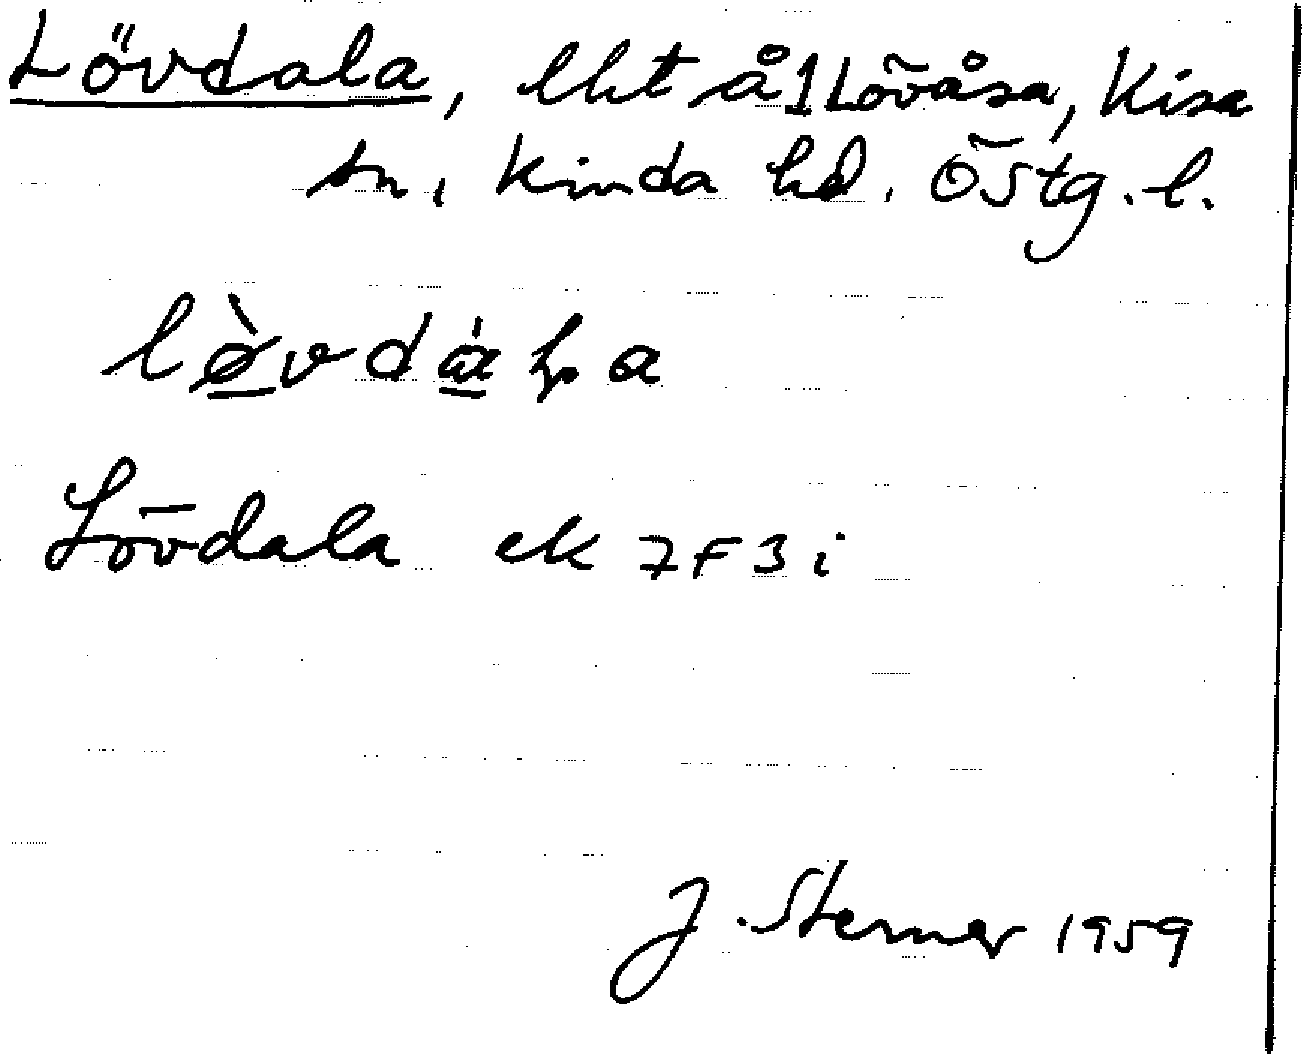 Lövdala, lht å 1 Lövåsa, Kisa
sn, Kinda hd. Östg. l.
Lövdala ek 7F3i
J. Sterner 1959